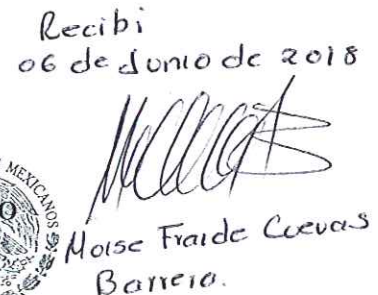 Recibi
06 de Junio de 2018
MEXICANOS
Moise Fraide Cuevas
Barrera.